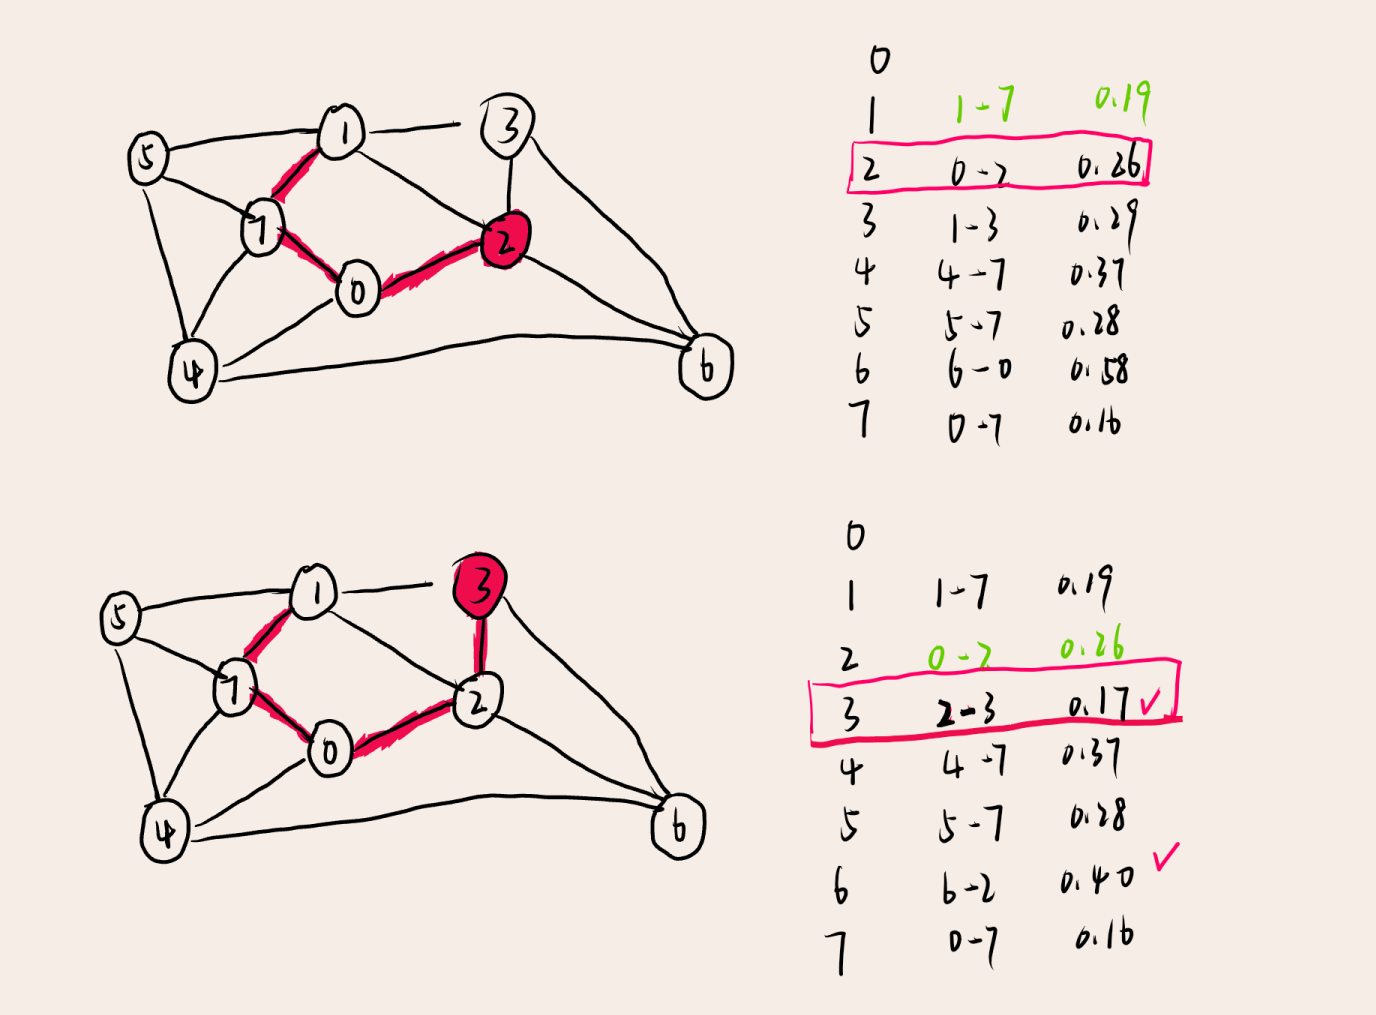 0
1 1-7 0.19
2 0-2 0.26
3 1-3 0.29
4 4-7 0.37
5 5-7 0.28
6 6-0 0.58
7 0-7 0.16
1
3
5
7
2
0
4
6
0
1 1-7 0.19
2 0-2 0.26
3 2-3 0.17 ✓
4 4-7 0.37
5 5-7 0.28
6 6-2 0.40 ✓
7 0-7 0.16
1
3
5
7
2
0
4
6